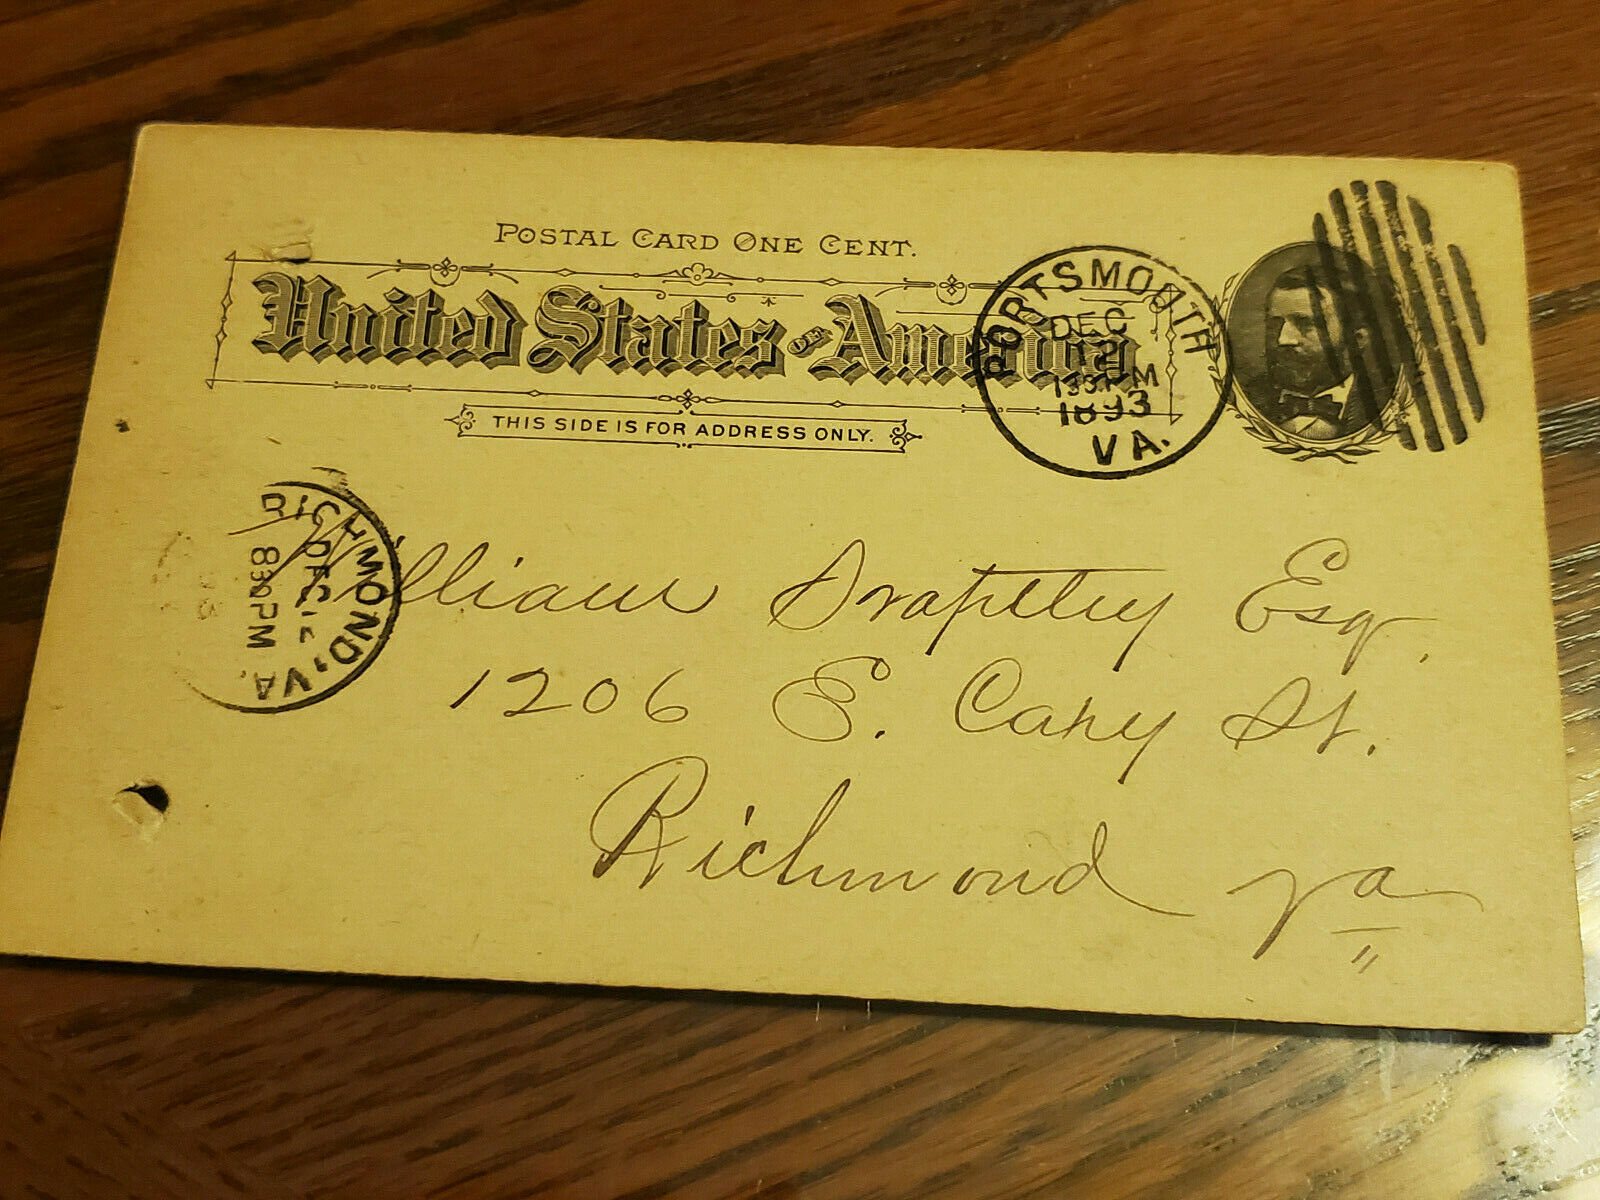 POSTAL CARD ONE CENT.
United States OF America
THIS SIDE IS FOR ADDRESS ONLY.
PORTSMOUTH
DEC
12
1893
VA.
RICHMOND, VA.
DEC 12
830PM
William
Esq.
1206 E. Cary St.
Richmond Va